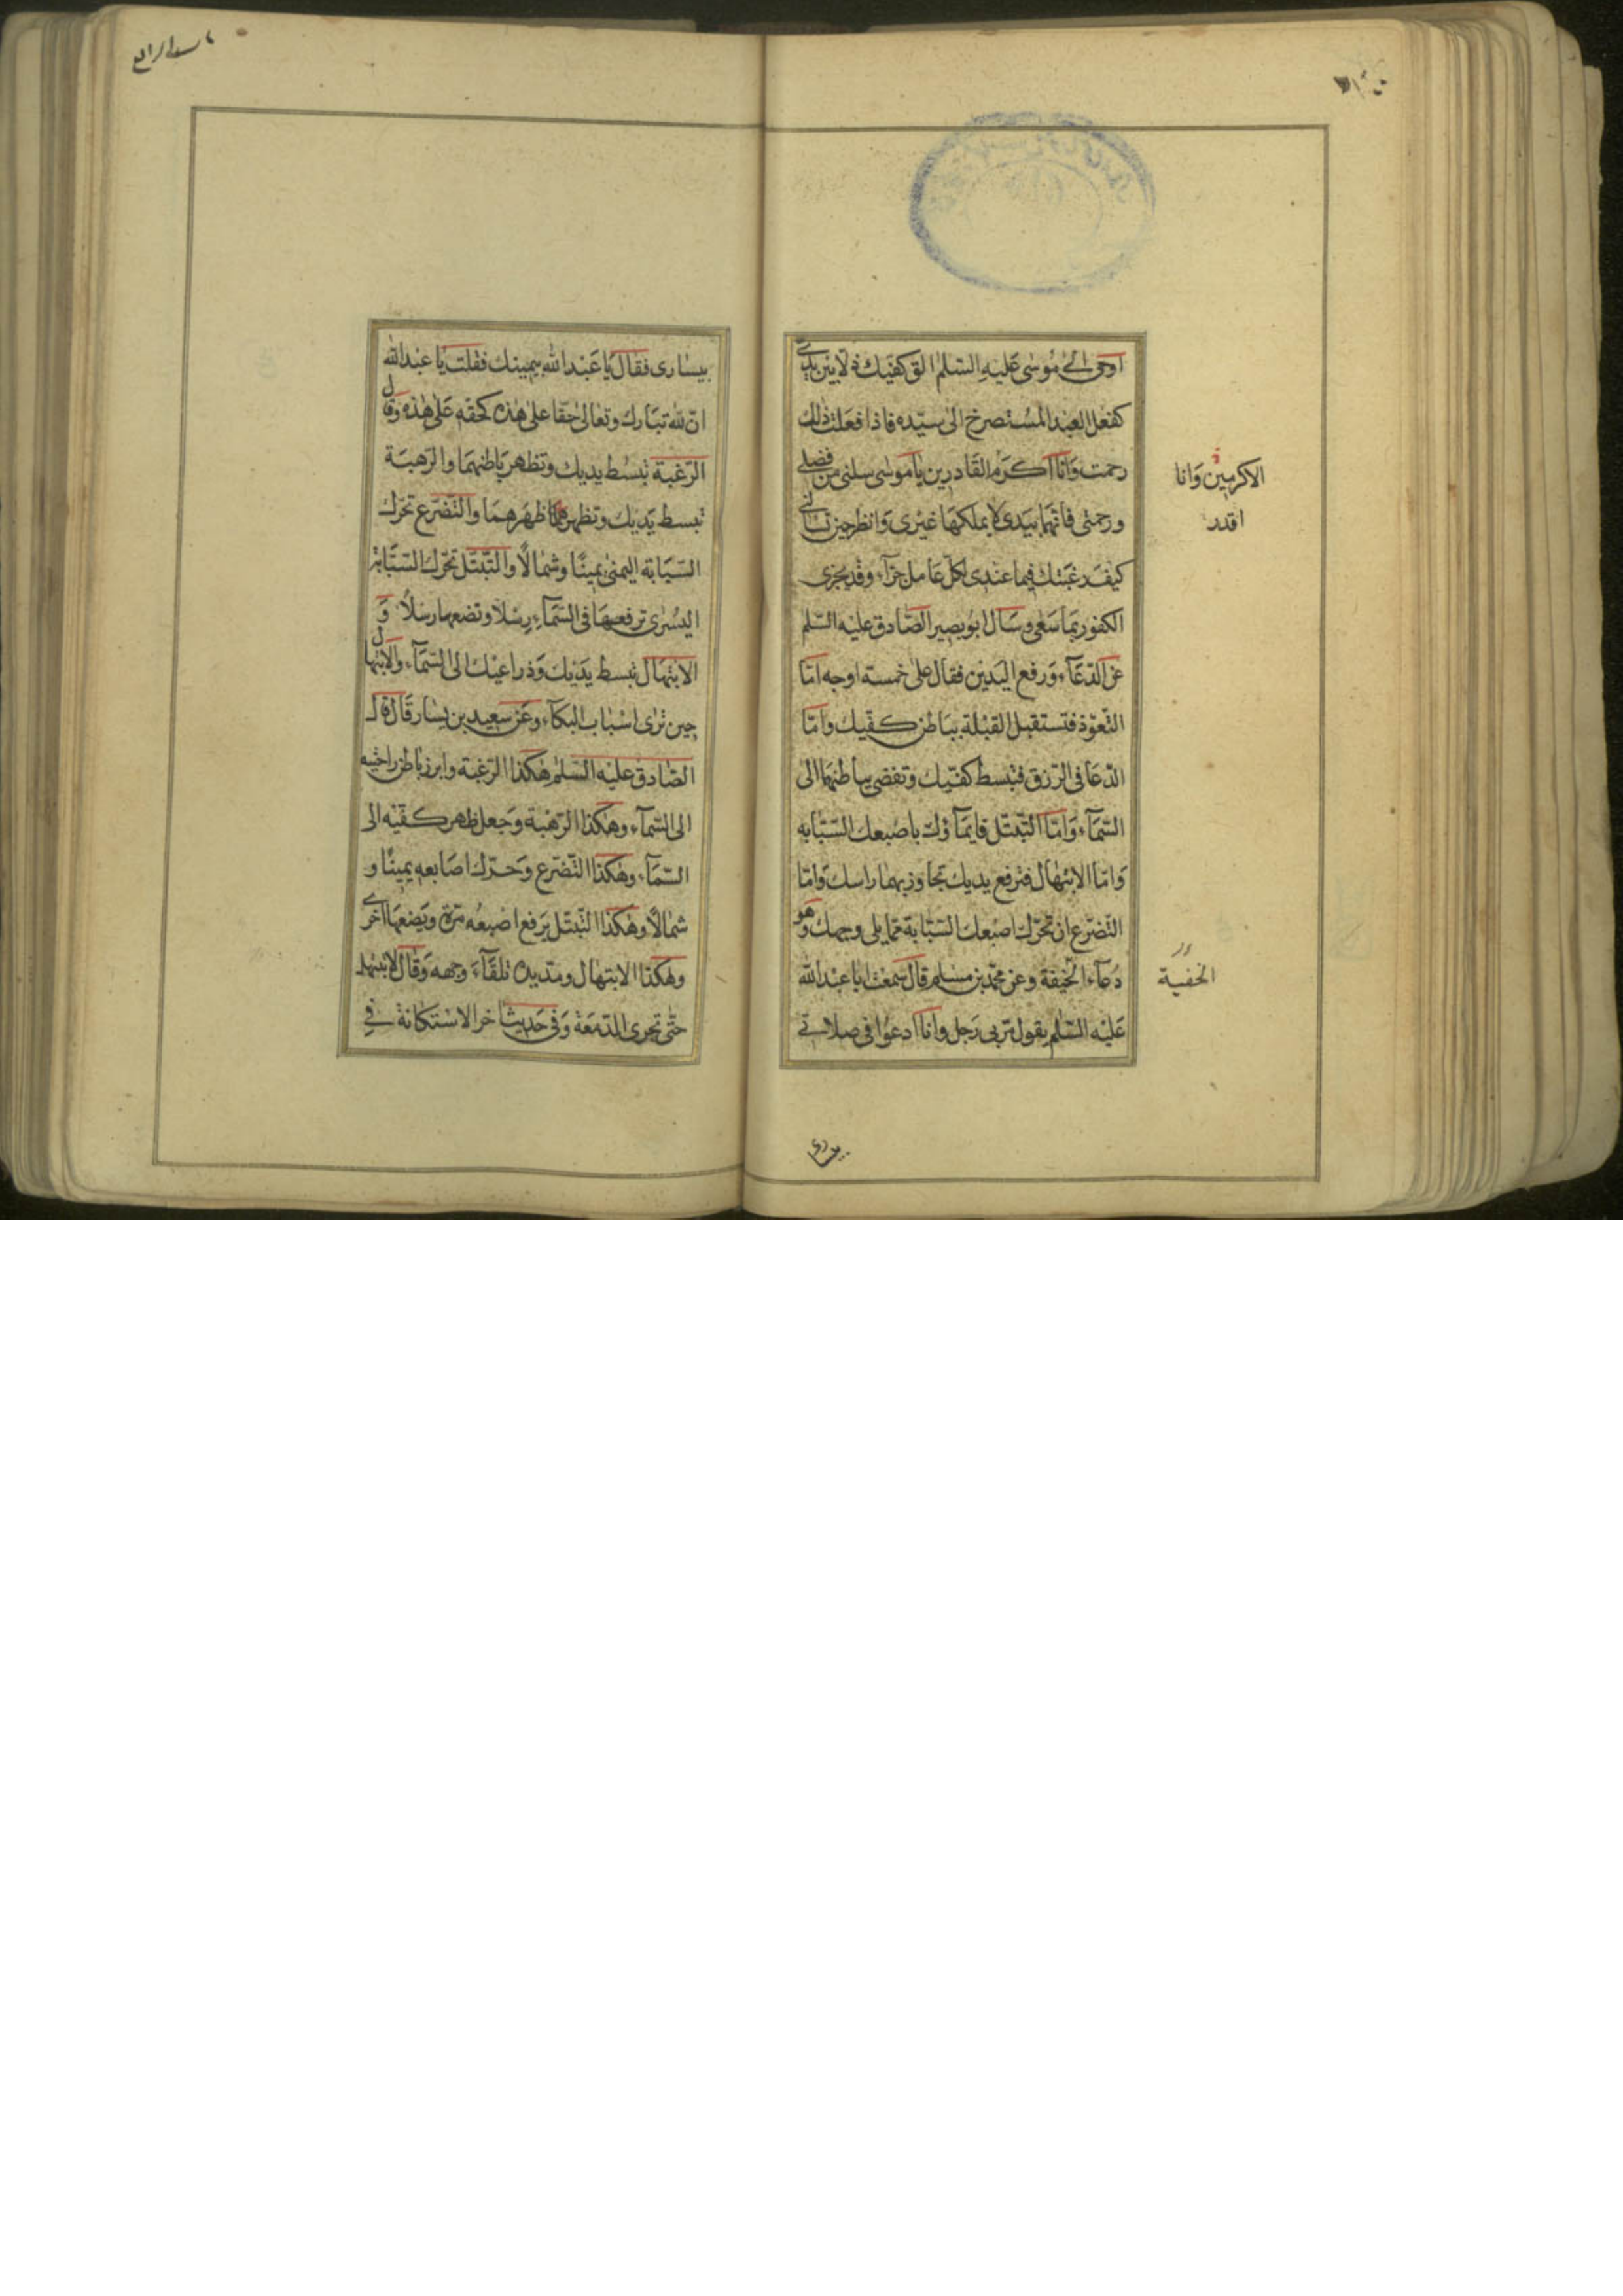 اوحى الى موسى عليه السلم الق كفيك ذلا بين يدى
كفعل العبد المستصرخ الى سيده فاذا فعلت ذلك
رحمت وانا اكرم القادرين يا موسى سلنى من فضلى
ورحمتى فانهما بيدى لا يملكها غيرى وانظر حين تسالنى
كيف رغبتك فيما عندى لكل عامل جزآء وقد يجزى
الكفور بما سعى وسال ابو بصير الصادق عليه السلم
عن الدعآء ورفع اليدين فقال على خمسة اوجه اما
التعوذ فتستقبل القبلة بباطن كفيك واما
الدعا فى الرزق فتبسط كفيك وتفضى بباطنهما الى
السمآء واما التبتل فايمآؤك باصبعك السبابه
واما الابتهال فترفع يديك تجاوز بهما راسك واما
التضرع ان تحرك اصبعك السبابة مما يلى وجهك وهو
دعآء الخيفة وعن محمد بن مسلم قال سمعت ابا عبد الله
عليه السلم يقول مر بى رجل وانا ادعوا فى صلاتى
الاكرمين وانا
اقدر
الخفية
يسارى
بيسارى فقال يا عبد الله بيمينك فقلت يا عبد الله
ان لله تبارك وتعالى حقا على هذه كحقه على هذه وقال
الرغبة تبسط يديك وتظهر باطنهما والرهبة
تبسط يديك وتظهر ظهرهما والتضرع تحرك
السبابة اليمنى يمينا وشمالا والتبتل تحرك السبابة
اليسرى ترفعها فى السمآء رسلا وتضعها رسلا و
الابتهال تبسط يديك وذراعيك الى السمآء والابتهال
حين ترى اسباب البكآء وعن سعيد بن يسار قال قال
الصادق عليه السلم هكذا الرغبة وابرز باطن راحتيه
الى السمآء وهكذا الرهبة وجعل ظهر كفيه الى
السمآء وهكذا التضرع وحرك اصابعه يمينا و
شمالا وهكذا التبتل يرفع اصبعه مرة ويضعها اخرى
وهكذا الابتهال ومد يده تلقآء وجهه وقال لا تبتهل
حتى تجرى الدمعة وفى حديث اخر الاستكانة فى